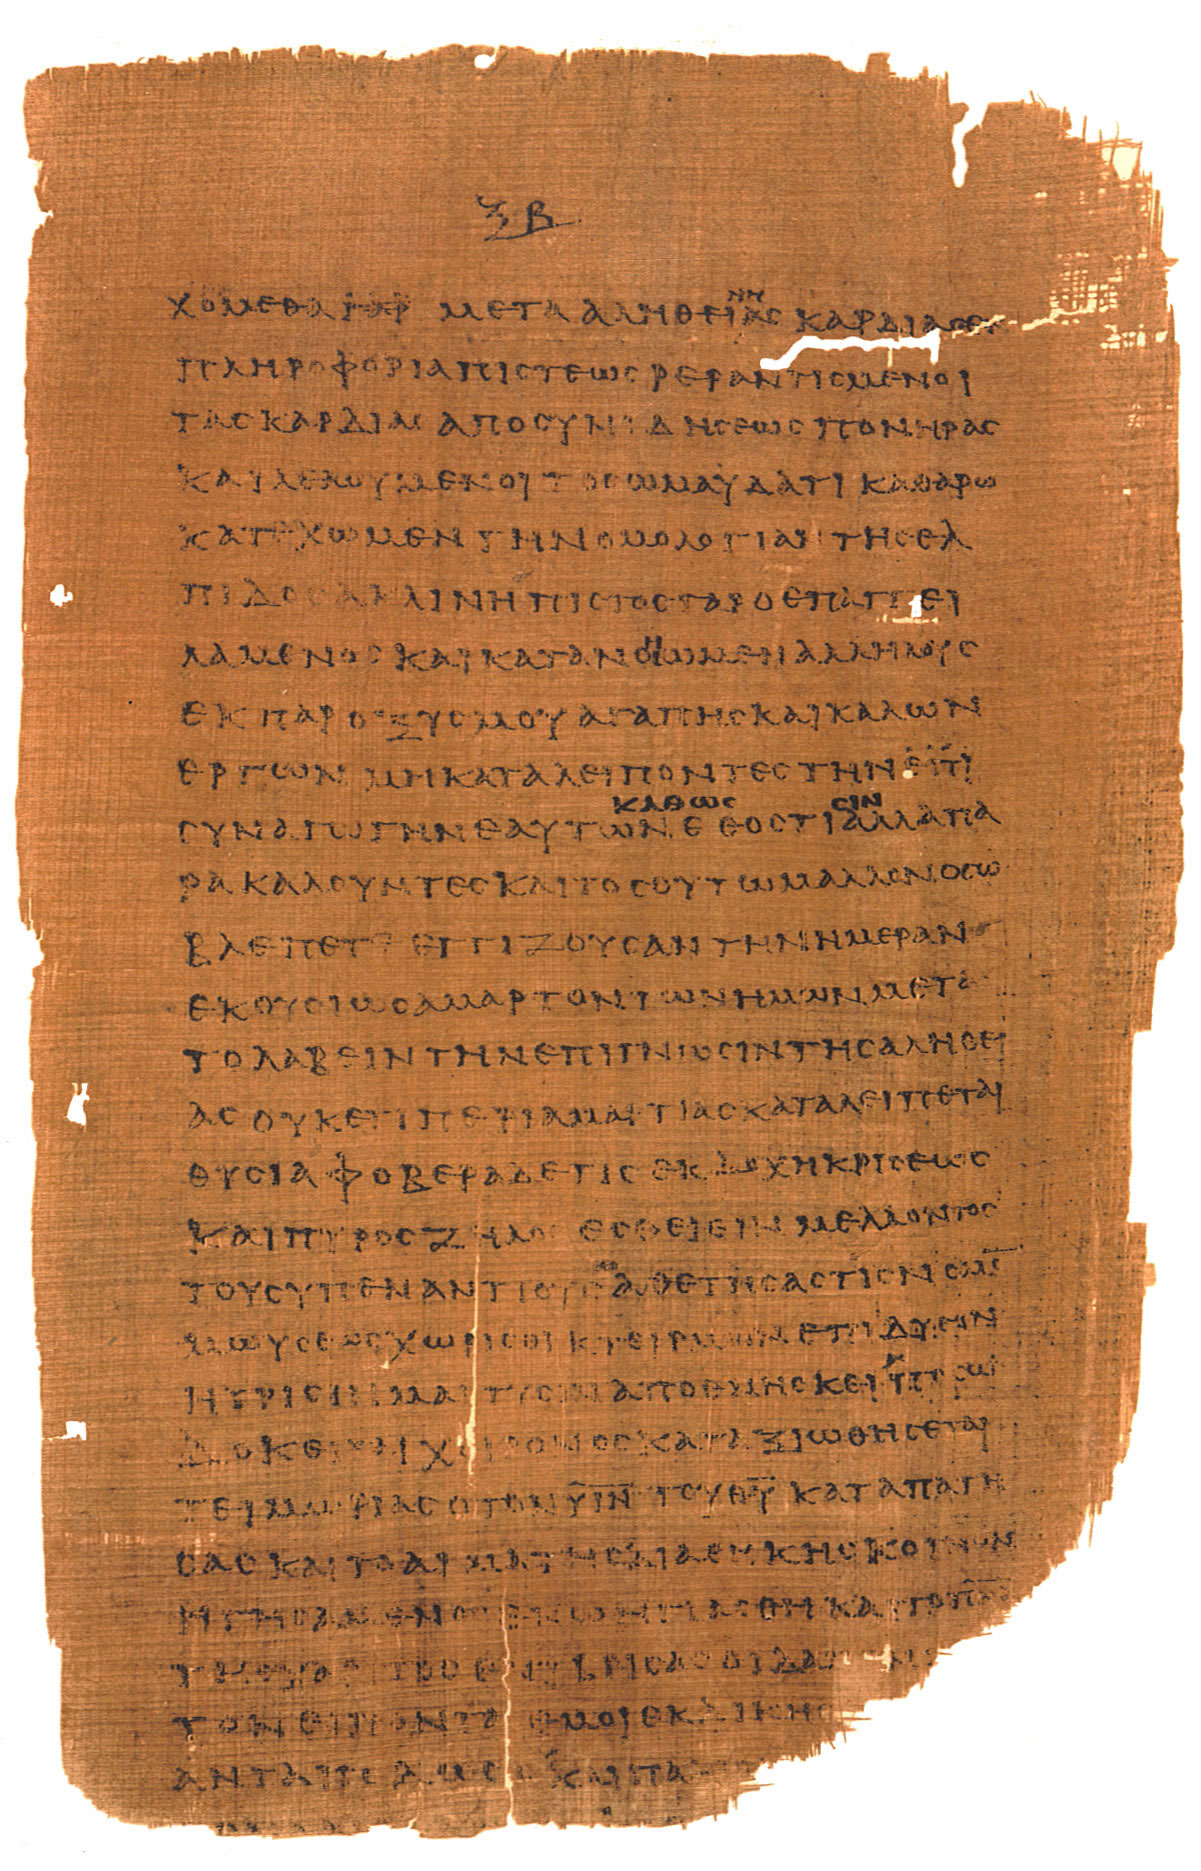 ΞΒ
ΧΟΜΕΘΑΓΑΡ ΜΕΤΑ ΑΛΗΘΕΙΑϹ ΚΑΡΔΙΑϹΕΝ
ΝΗ
ΠΛΗΡΟΦΟΡΙΑΠΙϹΤΕΩϹΡΕΡΑΝΤΙϹΜΕΝΟΙ
ΤΑϹΚΑΡΔΙΑϹ ΑΠΟϹΥΝΙΔΗϹΕΩϹΠΟΝΗΡΑϹ
ΚΑΙΛΕΛΟΥΜΕΝΟΙΤΟϹΩΜΑΥΔΑΤΙ ΚΑΘΑΡΩ
ΚΑΤΕΧΩΜΕΝ ΤΗΝΟΜΟΛΟΓΙΑΝ ΤΗϹΕΛ
ΠΙΔΟϹΑΚΛΙΝΗΠΙϹΤΟϹΓΑΡΟΕΠΑΓΓΕΙ
ΛΑΜΕΝΟϹ ΚΑΙΚΑΤΑΝΟΙΩΜΕΝΑΛΛΗΛΟΥϹ
ΕΚ ΠΑΡΟΞΥϹΜΟΥ ΑΓΑΠΗϹΚΑΙΚΑΛΩΝ
ΕΡΓΩΝ ΜΗΚΑΤΑΛΕΙΠΟΝΤΕϹΤΗΝΕΠΙ
ΚΑΘΩϹ ϹΙΝ
ϹΥΝΑΓΩΓΗΝΕΑΥΤΩΝ ΕΘΟϹΤΙΑΛΛΑΠΑ
ΡΑΚΑΛΟΥΝΤΕϹΚΑΙΤΟϹΟΥΤΩΜΑΛΛΟΝΟϹΩ
ΒΛΕΠΕΤΕ ΕΓΓΙΖΟΥϹΑΝ ΤΗΝΗΜΕΡΑΝ
ΕΚΟΥϹΙΩϹΑΜΑΡΤΟΝΤΩΝΗΜΩΝΜΕΤΑ
ΤΟΛΑΒΕΙΝΤΗΝΕΠΙΓΝΩϹΙΝΤΗϹΑΛΗΘΕΙ
ΑϹΟΥΚΕΤΙΠΕΡΙΑΜΑΡΤΙΑϹΚΑΤΑΛΕΙΠΕΤΑΙ
ΘΥϹΙΑ ΦΟΒΕΡΑΔΕΤΙϹ ΕΚΔΟΧΗΚΡΙϹΕΩϹ
ΚΑΙΠΥΡΟϹΖΗΛΟϹ ΕϹΘΕΙΕΙΝ ΜΕΛΛΟΝΤΟϹ
ΤΟΥϹΥΠΕΝΑΝΤΙΟΥϹΑΘΕΤΗϹΑϹΤΙϹΝΟΜΟ
ΜΩΥϹΕΩϹΧΩΡΙϹΟΙΚΤΕΙΡΜΩΝΕΠΙΔΥϹΙΝ
ΗΤΡΙϹΙΝΜΑΡΤΥϹΙΝΑΠΟΘΝΗϹΚΕΙΠΟϹΩ
ΔΟΚΕΙΤΑΙΧΕΙΡΟΝΟϹΚΑΤΑΞΙΩΘΗϹΕΤΑΙ
ΤΕΙΜΩΡΙΑϹΟΤΟΝΥΙΝ ΤΟΥΘΥ ΚΑΤΑΠΑΤΗ
ϹΑϹΚΑΙΤΟΑΙΜΑΤΗϹΔΙΑΘΗΚΗϹΚΟΙΝΟΝ
ΗΓΗϹΑΜΕΝΟϹΕΝΩΗΓΙΑϹΘΗΚΑΙΤΟΠΝΑ
ΤΗϹΧΑΡΙΤΟϹΕΝΥΒΡΙϹΑϹΟΙΔΑΜΕΝ
ΤΟΝΕΙΠΟΝΤΑ ΕΜΟΙΕΚΔΙΚΗϹ
ΑΝΤΑΠΟΔΩϹΩ ΚΑΙΠΑ